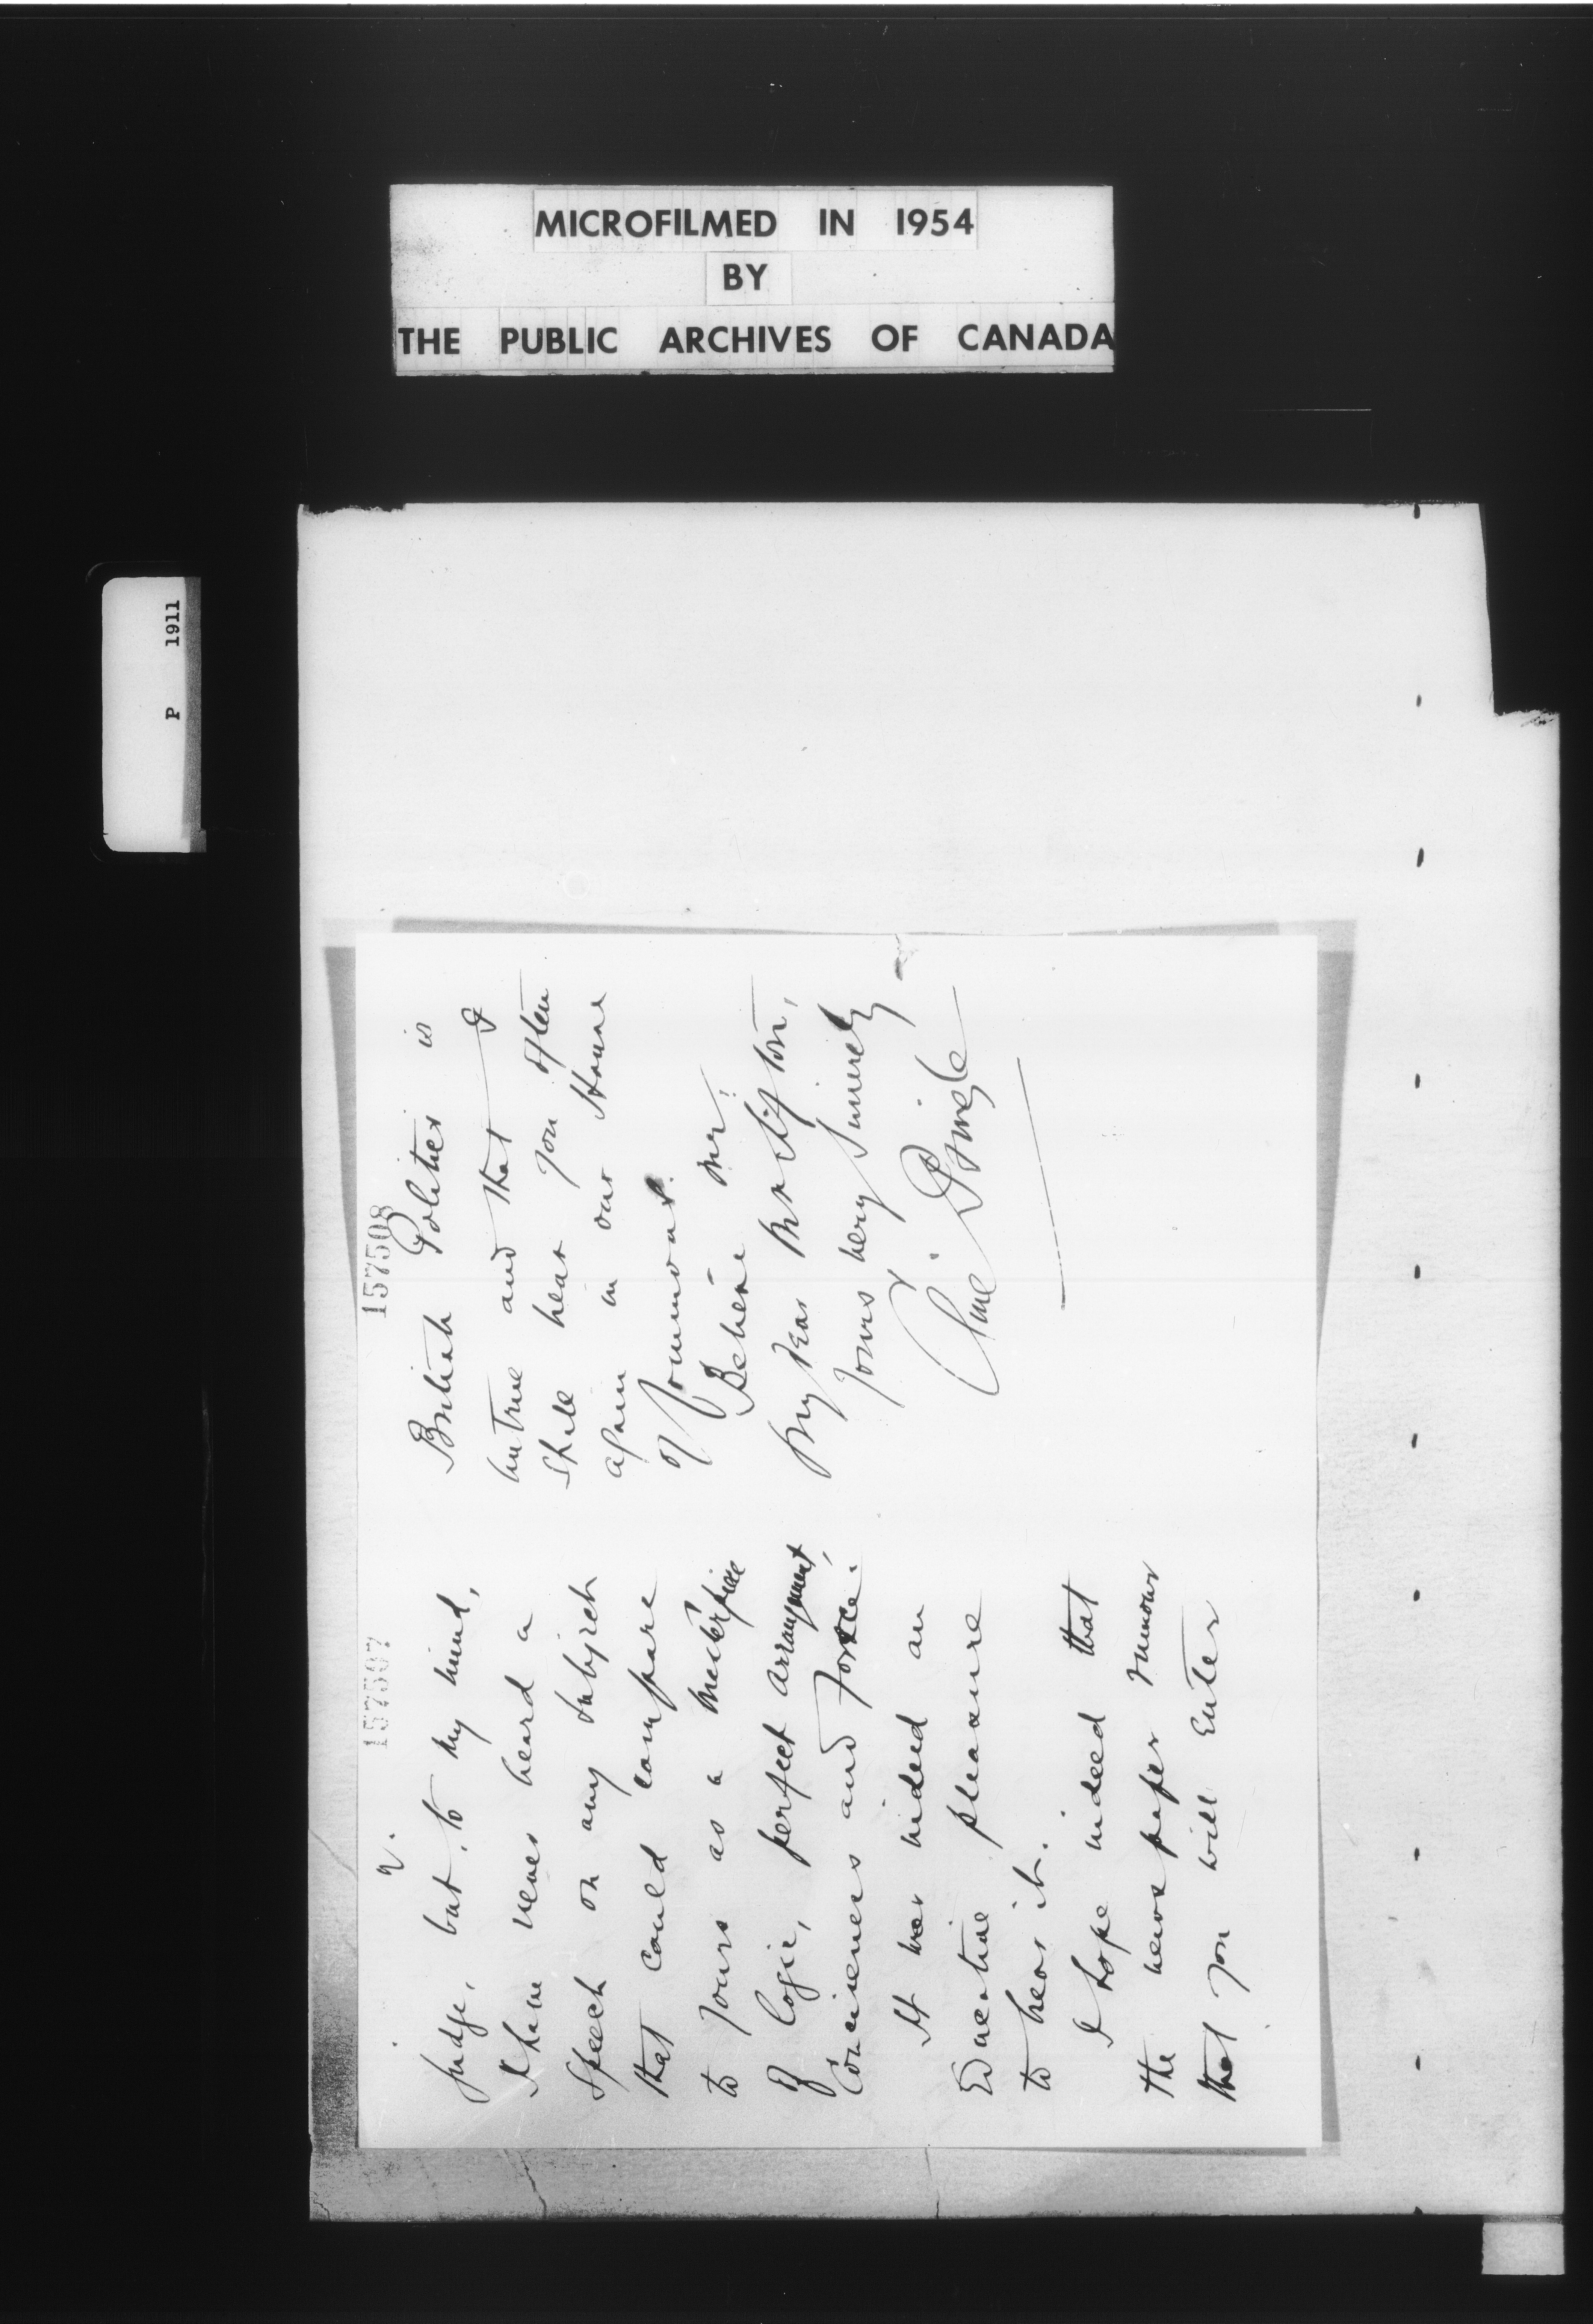 MICROFILMED IN 1954
BY
THE PUBLIC ARCHIVES OF CANADA
P 1911
157507
2.
judge, but, to my mind,
I have never heard a
speech on any subject
that could compare
to yours as a masterpiece
of logic, perfect arrangement,
conciseness and force.
It was indeed an
Education pleasure
to hear it.
I hope indeed that
the newspaper rumour
that you will enter
157508
British Politics is
untrue and that I
shall hear you often
again in our House
of Commons.
Believe me,
My dear
Yours very sincerely
Clive Pringle